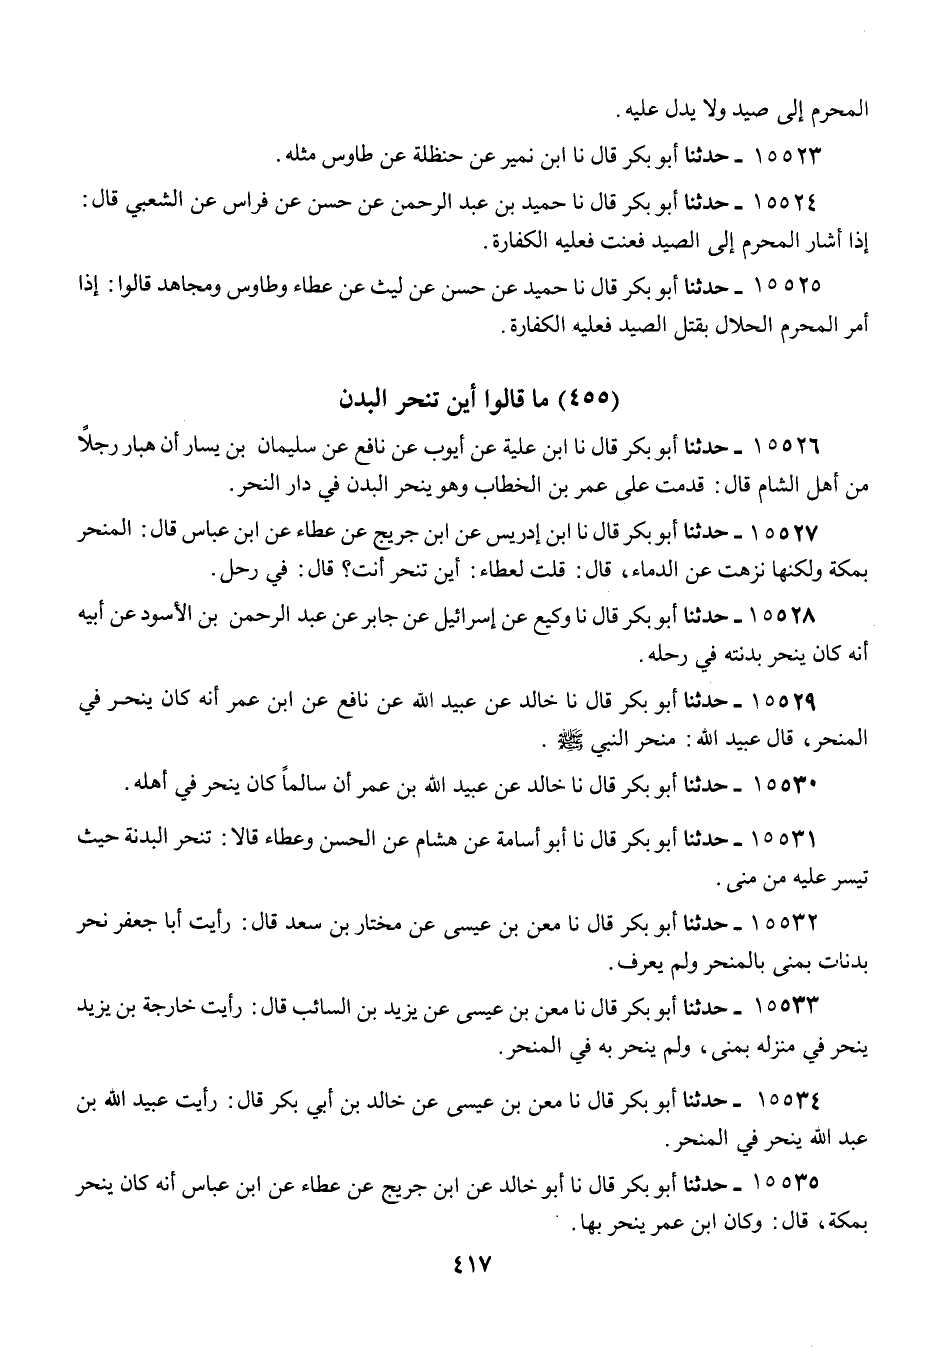 المحرم إلى صيد ولا يدل عليه .
١٥٥٢٣ ـ حدثنا أبو بكر قال نا ابن نمير عن حنظلة عن طاوس مثله .
١٥٥٢٤ ـ حدثنا أبو بكر قال نا حميد بن عبد الرحمن عن حسن عن فراس عن الشعبي قال :
إذا أشار المحرم إلى الصيد فعنت فعليه الكفارة .
١٥٥٢٥ ـ حدثنا أبو بكر قال نا حميد عن حسن عن ليث عن عطاء وطاوس ومجاهد قالوا : إذا
أمر المحرم الحلال بقتل الصيد فعليه الكفارة .
(٤٥٥) ما قالوا أين تنحر البدن
١٥٥٢٦ ـ حدثنا أبو بكر قال نا ابن علية عن أيوب عن نافع عن سليمان بن يسار أن هبار رجلاً
من أهل الشام قال : قدمت على عمر بن الخطاب وهو ينحر البدن في دار النحر .
١٥٥٢٧ ـ حدثنا أبو بكر قال نا ابن إدريس عن ابن جريج عن عطاء عن ابن عباس قال : المنحر
بمكة ولكنها نزهت عن الدماء ، قال : قلت لعطاء : أين تنحر أنت؟ قال : في رحل .
١٥٥٢٨ ـ حدثنا أبو بكر قال نا وكيع عن إسرائيل عن جابر عن عبد الرحمن بن الأسود عن أبيه
أنه كان ينحر بدنته في رحله .
١٥٥٢٩ ـ حدثنا أبو بكر قال نا خالد عن عبيد الله عن نافع عن ابن عمر أنه كان ينحر في
المنحر ، قال عبيد الله : منحر النبي ﷺ .
١٥٥٣٠ ـ حدثنا أبو بكر قال نا خالد عن عبيد الله بن عمر أن سالماً كان ينحر في أهله .
١٥٥٣١ ـ حدثنا أبو بكر قال نا أبو أسامة عن هشام عن الحسن وعطاء قالا : تنحر البدنة حيث
تيسر عليه من منى .
١٥٥٣٢ ـ حدثنا أبو بكر قال نا معن بن عيسى عن مختار بن سعد قال : رأيت أبا جعفر نحر
بدنات بمنى بالمنحر ولم يعرف .
١٥٥٣٣ ـ حدثنا أبو بكر قال نا معن بن عيسى عن يزيد بن السائب قال : رأيت خارجة بن يزيد
ينحر في منزله بمنى ، ولم ينحر به في المنحر .
١٥٥٣٤ ـ حدثنا أبو بكر قال نا معن بن عيسى عن خالد بن أبي بكر قال : رأيت عبيد الله بن
عبد الله ينحر في المنحر .
١٥٥٣٥ ـ حدثنا أبو بكر قال نا أبو خالد عن ابن جريج عن عطاء عن ابن عباس أنه كان ينحر
بمكة ، قال : وكان ابن عمر ينحر بها .
٤١٧